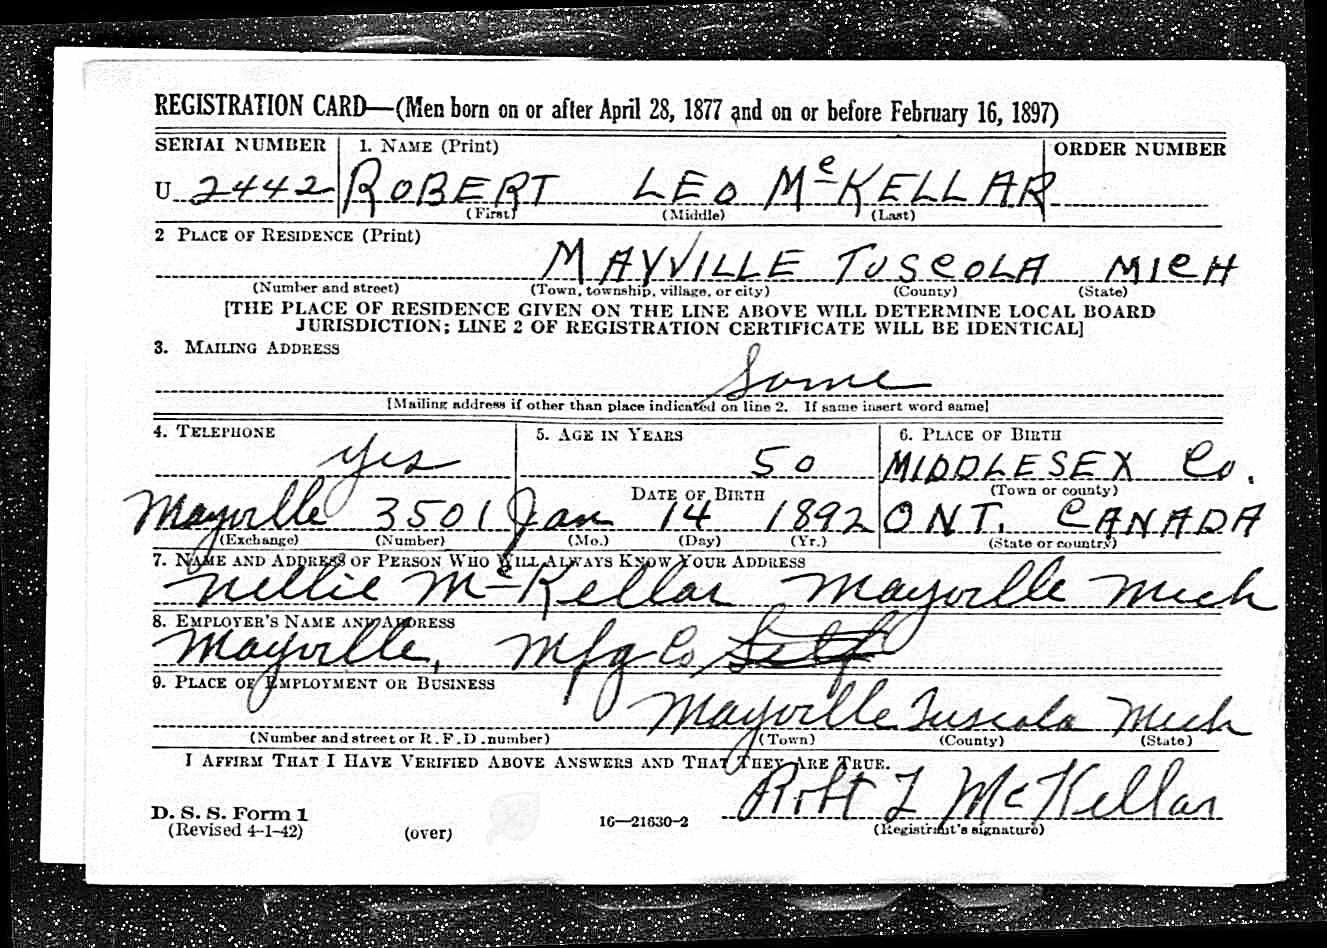 REGISTRATION CARD—(Men born on or after April 28, 1877 and on or before February 16, 1897)
SERIAL NUMBER 1. NAME (Print) ORDER NUMBER
U 2442 ROBERT LEO McKELLAR
(First) (Middle) (Last)
2 PLACE OF RESIDENCE (Print)
MAYVILLE TUSCOLA MICH
(Number and street) (Town, township, village, or city) (County) (State)
[THE PLACE OF RESIDENCE GIVEN ON THE LINE ABOVE WILL DETERMINE LOCAL BOARD
JURISDICTION; LINE 2 OF REGISTRATION CERTIFICATE WILL BE IDENTICAL]
3. MAILING ADDRESS
Same
[Mailing address if other than place indicated on line 2. If same insert word same]
4. TELEPHONE 5. AGE IN YEARS 6. PLACE OF BIRTH
yes 50 MIDDLESEX Co.
DATE OF BIRTH (Town or county)
Mayville 3501 Jan 14 1892 ONT. CANADA
(Exchange) (Number) (Mo.) (Day) (Yr.) (State or country)
7. NAME AND ADDRESS OF PERSON WHO WILL ALWAYS KNOW YOUR ADDRESS
Nellie McKellar Mayville Mich
8. EMPLOYER'S NAME AND ADDRESS
Mayville, Mfg Co Self
9. PLACE OF EMPLOYMENT OR BUSINESS
Mayville Tuscola Mich
(Number and street or R. F. D. number) (Town) (County) (State)
I AFFIRM THAT I HAVE VERIFIED ABOVE ANSWERS AND THAT THEY ARE TRUE.
Robt L McKellar
D. S. S. Form 1
(Revised 4-1-42) (over) 16—21630-2 (Registrant's signature)